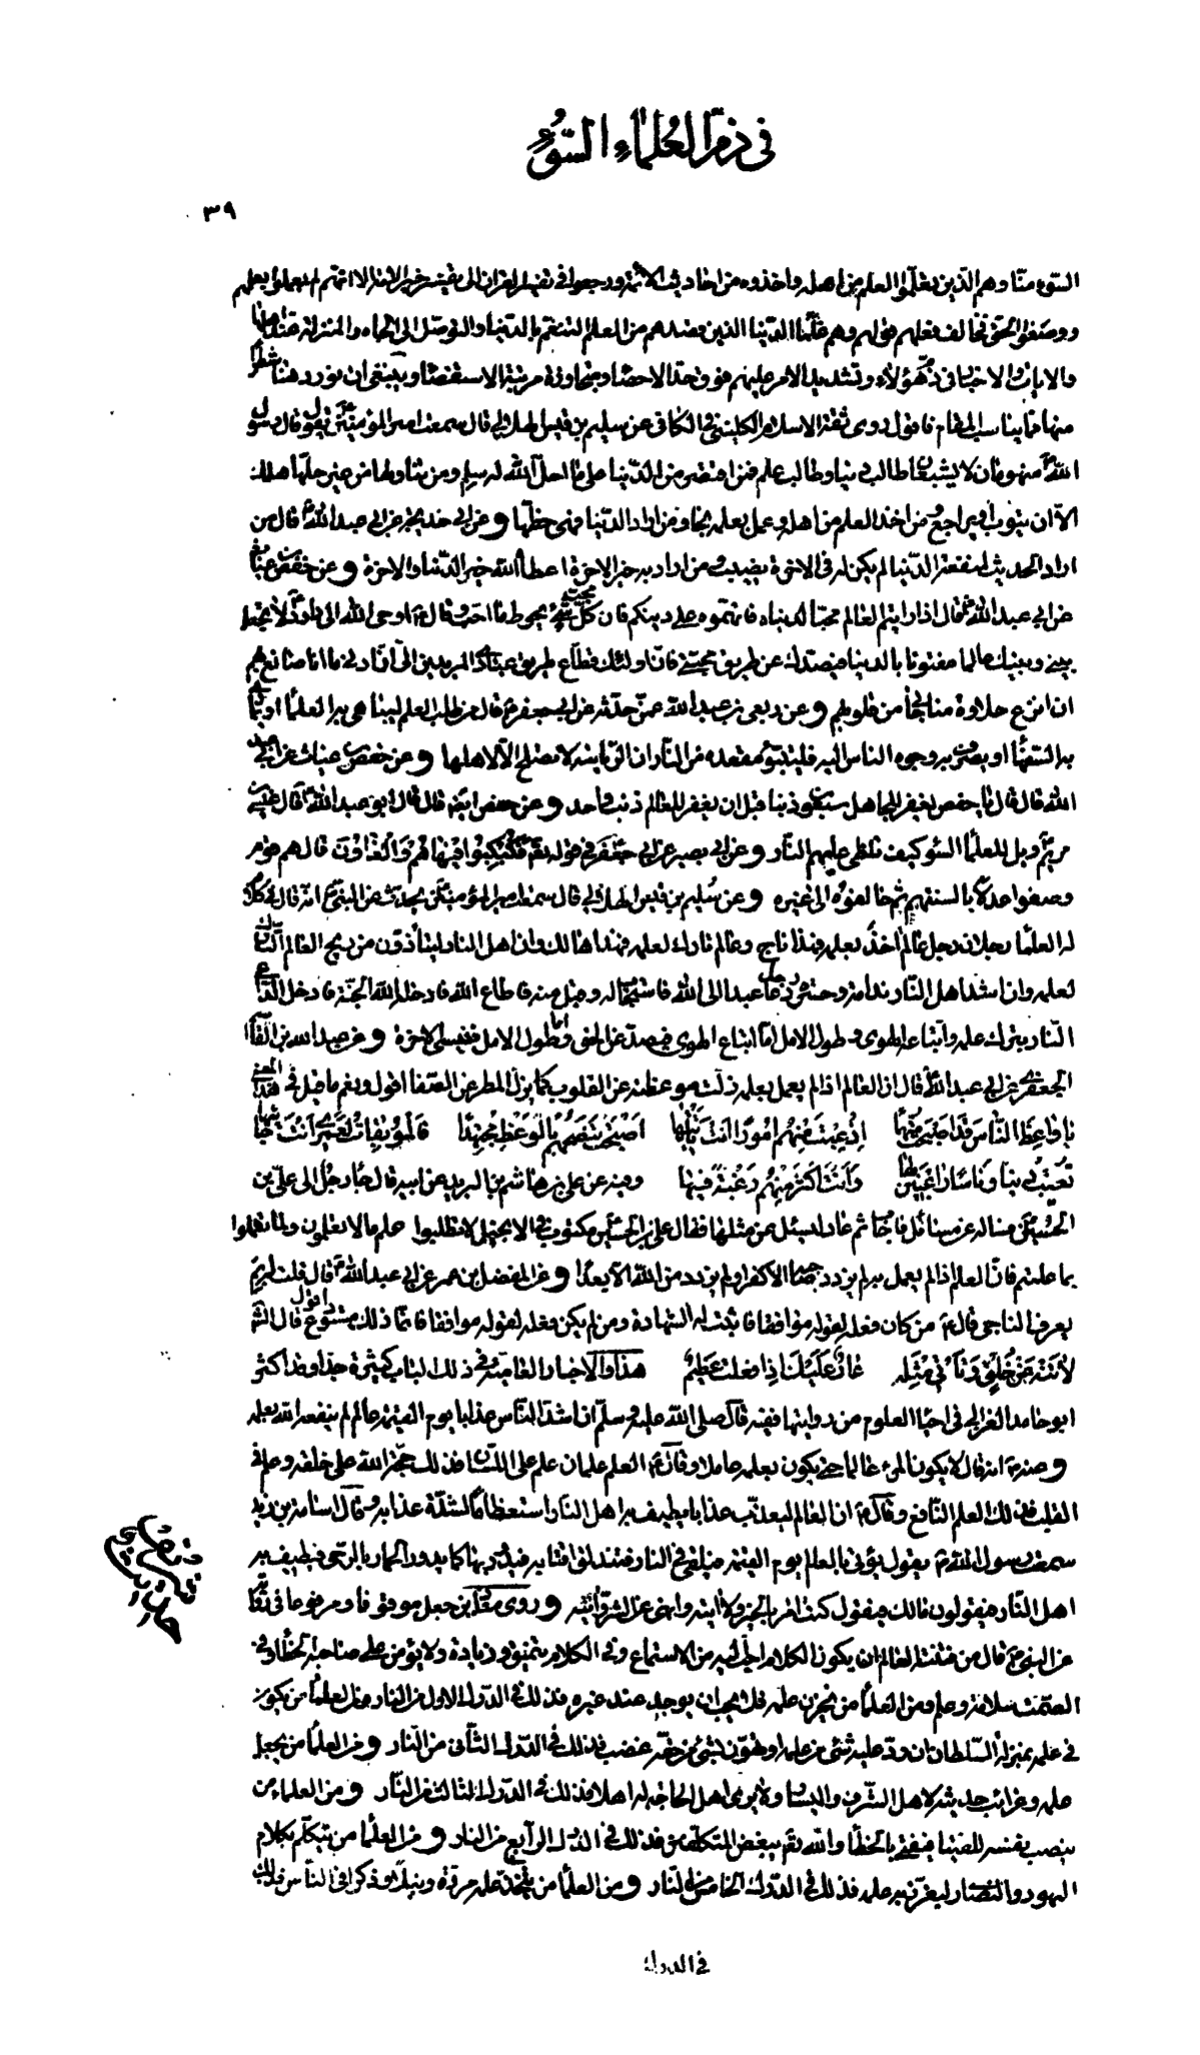 في ذم العلماء السوء
٣٩
السوء منا وهم الذين تعلموا العلم من اهله واخذوه من احاديث الائمة ورجعوا في تفسير القران الى تفسير خير الانام الا انهم لم يعملوا بعلمهم
ووصفوا الحق فخالف فعلهم قولهم وهم علماء الدنيا الذين قصدهم من العلم التنعم بالدنيا والتوصل الى الجاه والمنزلة عند اهلها
والايات والاخبار في ذم هؤلاء وتشديد الامر عليهم فوق حد الاحصاء ومتجاوزة مرتبة الاستقصاء وينبغي ان نورد هنا شطرا
منها مما يناسب المقام فاقول روى ثقة الاسلام الكليني في الكافي عن سليم بن قيس الهلالي قال سمعت امير المؤمنين يقول قال رسول
الله منهومان لا يشبعان طالب دنيا وطالب علم فمن اقتصر من الدنيا على ما احل الله له سلم ومن تناولها من غير حلها هلك
الا ان يتوب او يراجع ومن اخذ العلم من اهله وعمل بعلمه نجا ومن اراد به الدنيا فهي حظه وعن ابي خديجة عن ابي عبد الله قال من
اراد الحديث لمنفعة الدنيا لم يكن له في الاخرة نصيب ومن اراد به خير الاخرة اعطاه الله خير الدنيا والاخرة وعن حفص بن غياث
عن ابي عبد الله قال اذا رايتم العالم محبا لدنياه فاتهموه على دينكم فان كل محب لشيء يحوط ما احب وقال اوحى الله الى داود لا تجعل
بيني وبينك عالما مفتونا بالدنيا فيصدك عن طريق محبتي فان اولئك قطاع طريق عبادي المريدين الي ان ادنى ما انا صانع بهم
ان انزع حلاوة مناجاتي من قلوبهم وعن ربعي بن عبد الله عمن حدثه عن ابي جعفر قال من طلب العلم ليباهي به العلماء او يماري
به السفهاء او يصرف به وجوه الناس اليه فليتبوء مقعده من النار ان الرئاسة لا تصلح الا لاهلها وعن حفص بن غياث عن ابي عبد
الله قال قال يا حفص يغفر للجاهل سبعون ذنبا قبل ان يغفر للعالم ذنب واحد وعن حفص ايضا قال قال ابو عبد الله قال عيسى بن
مريم ويل للعلماء السوء كيف تلظى عليهم النار وعن ابي بصير عن ابي جعفر في قوله تعالى فكبكبوا فيها هم والغاوون قال هم قوم
وصفوا عدلا بالسنتهم ثم خالفوه الى غيره وعن سليم بن قيس الهلالي قال سمعت امير المؤمنين يحدث عن النبي انه قال في كلام
له العلماء رجلان رجل عالم اخذ بعلمه فهذا ناج وعالم تارك لعلمه فهذا هالك وان اهل النار ليتأذون من ريح العالم التارك
لعلمه وان اشد اهل النار ندامة وحسرة رجل دعا عبدا الى الله فاستجاب له وقبل منه فاطاع الله فادخله الله الجنة وادخل الداعي
النار بتركه علمه واتباعه الهوى وطول الامل اما اتباع الهوى فيصد عن الحق واما طول الامل فينسي الاخرة وعن عبد الله بن القاسم
الجعفري عن ابي عبد الله قال ان العالم اذا لم يعمل بعلمه زلت موعظته عن القلوب كما يزل المطر عن الصفا اقول ونعم ما قيل في هذا المعنى
يا واعظ الناس قد اصبحت متهما اذ عبت منهم امورا انت تاتيها اصبحت تنصحهم بالوعظ مجتهدا فالموبقات لعمري انت جانيها
تعيب دنيا وناسا راغبين لها وانت اكثر منهم رغبة فيها وفيه عن علي بن هاشم بن البريد عن ابيه قال جاء رجل الى علي بن
الحسين فساله عن مسائل فاجاب ثم عاد ليسئل عن مثلها فقال علي بن الحسين مكتوب في الانجيل لا تطلبوا علم ما لا تعلمون ولما تعملوا
بما علمتم فان العلم اذا لم يعمل به لم يزدد صاحبه الا كفرا ولم يزدد من الله الا بعدا وعن المفضل بن عمر عن ابي عبد الله قال قلت له بم
يعرف الناجي قال من كان فعله لقوله موافقا فاثبت له الشهادة ومن لم يكن فعله لقوله موافقا فانما ذلك مستودع اقول قال الشاعر
لا تنه عن خلق وتأتي مثله عار عليك اذا فعلت عظيم هذا والاخبار الخاصية في ذلك الباب كثيرة جدا وقد اكثر
ابو حامد الغزالي في احياء العلوم من روايتها ففيه قال صلى الله عليه وسلم ان اشد الناس عذابا يوم القيمة عالم لم ينفعه الله بعلمه
وعنه انه قال لا يكون المرء عالما حتى يكون بعلمه عاملا وقال العلم علمان علم على اللسان فذلك حجة الله على خلقه وعلم في
القلب فذلك العلم النافع وقال ان العالم ليعذب عذابا يطيف به اهل النار استعظاما لشدة عذابه وقال اسامة بن زيد
سمعت رسول الله يقول يؤتى بالعالم يوم القيمة فيلقى في النار فتندلق اقتابه فيدور بها كما يدور الحمار بالرحى فيطيف به
اهل النار فيقولون مالك فيقول كنت امر بالخير ولا اتيه وانهى عن الشر واتيه وروى معاذ بن جبل موقوفا ومرفوعا في رواية
عن النبي قال من فتنة العالم ان يكون الكلام احب اليه من الاستماع وفي الكلام تنميق وزيادة ولا يؤمن على صاحبه الخطاء وفي
الصمت سلامة وعلم ومن العلماء من يخزن علمه فلا يحب ان يوجد عند غيره فذلك في الدرك الاول من النار ومن العلماء من يكون
في علمه بمنزلة السلطان ان رد عليه شئ من علمه او تهون بشئ من حقه غضب فذلك في الدرك الثاني من النار ومن العلماء من يجعل
علمه وغرائب حديثه لاهل الشرف واليسار ولا يرى اهل الحاجة له اهلا فذلك في الدرك الثالث من النار ومن العلماء من
ينصب نفسه للفتيا فيفتي بالخطأ والله تعالى يبغض المتكلفين فذلك في الدرك الرابع من النار ومن العلماء من يتكلم بكلام
اليهود والنصارى ليغزر به علمه فذلك في الدرك الخامس من النار ومن العلماء من يتخذ علمه مروة ونبلا وذكرا في الناس فذلك
في الدرك